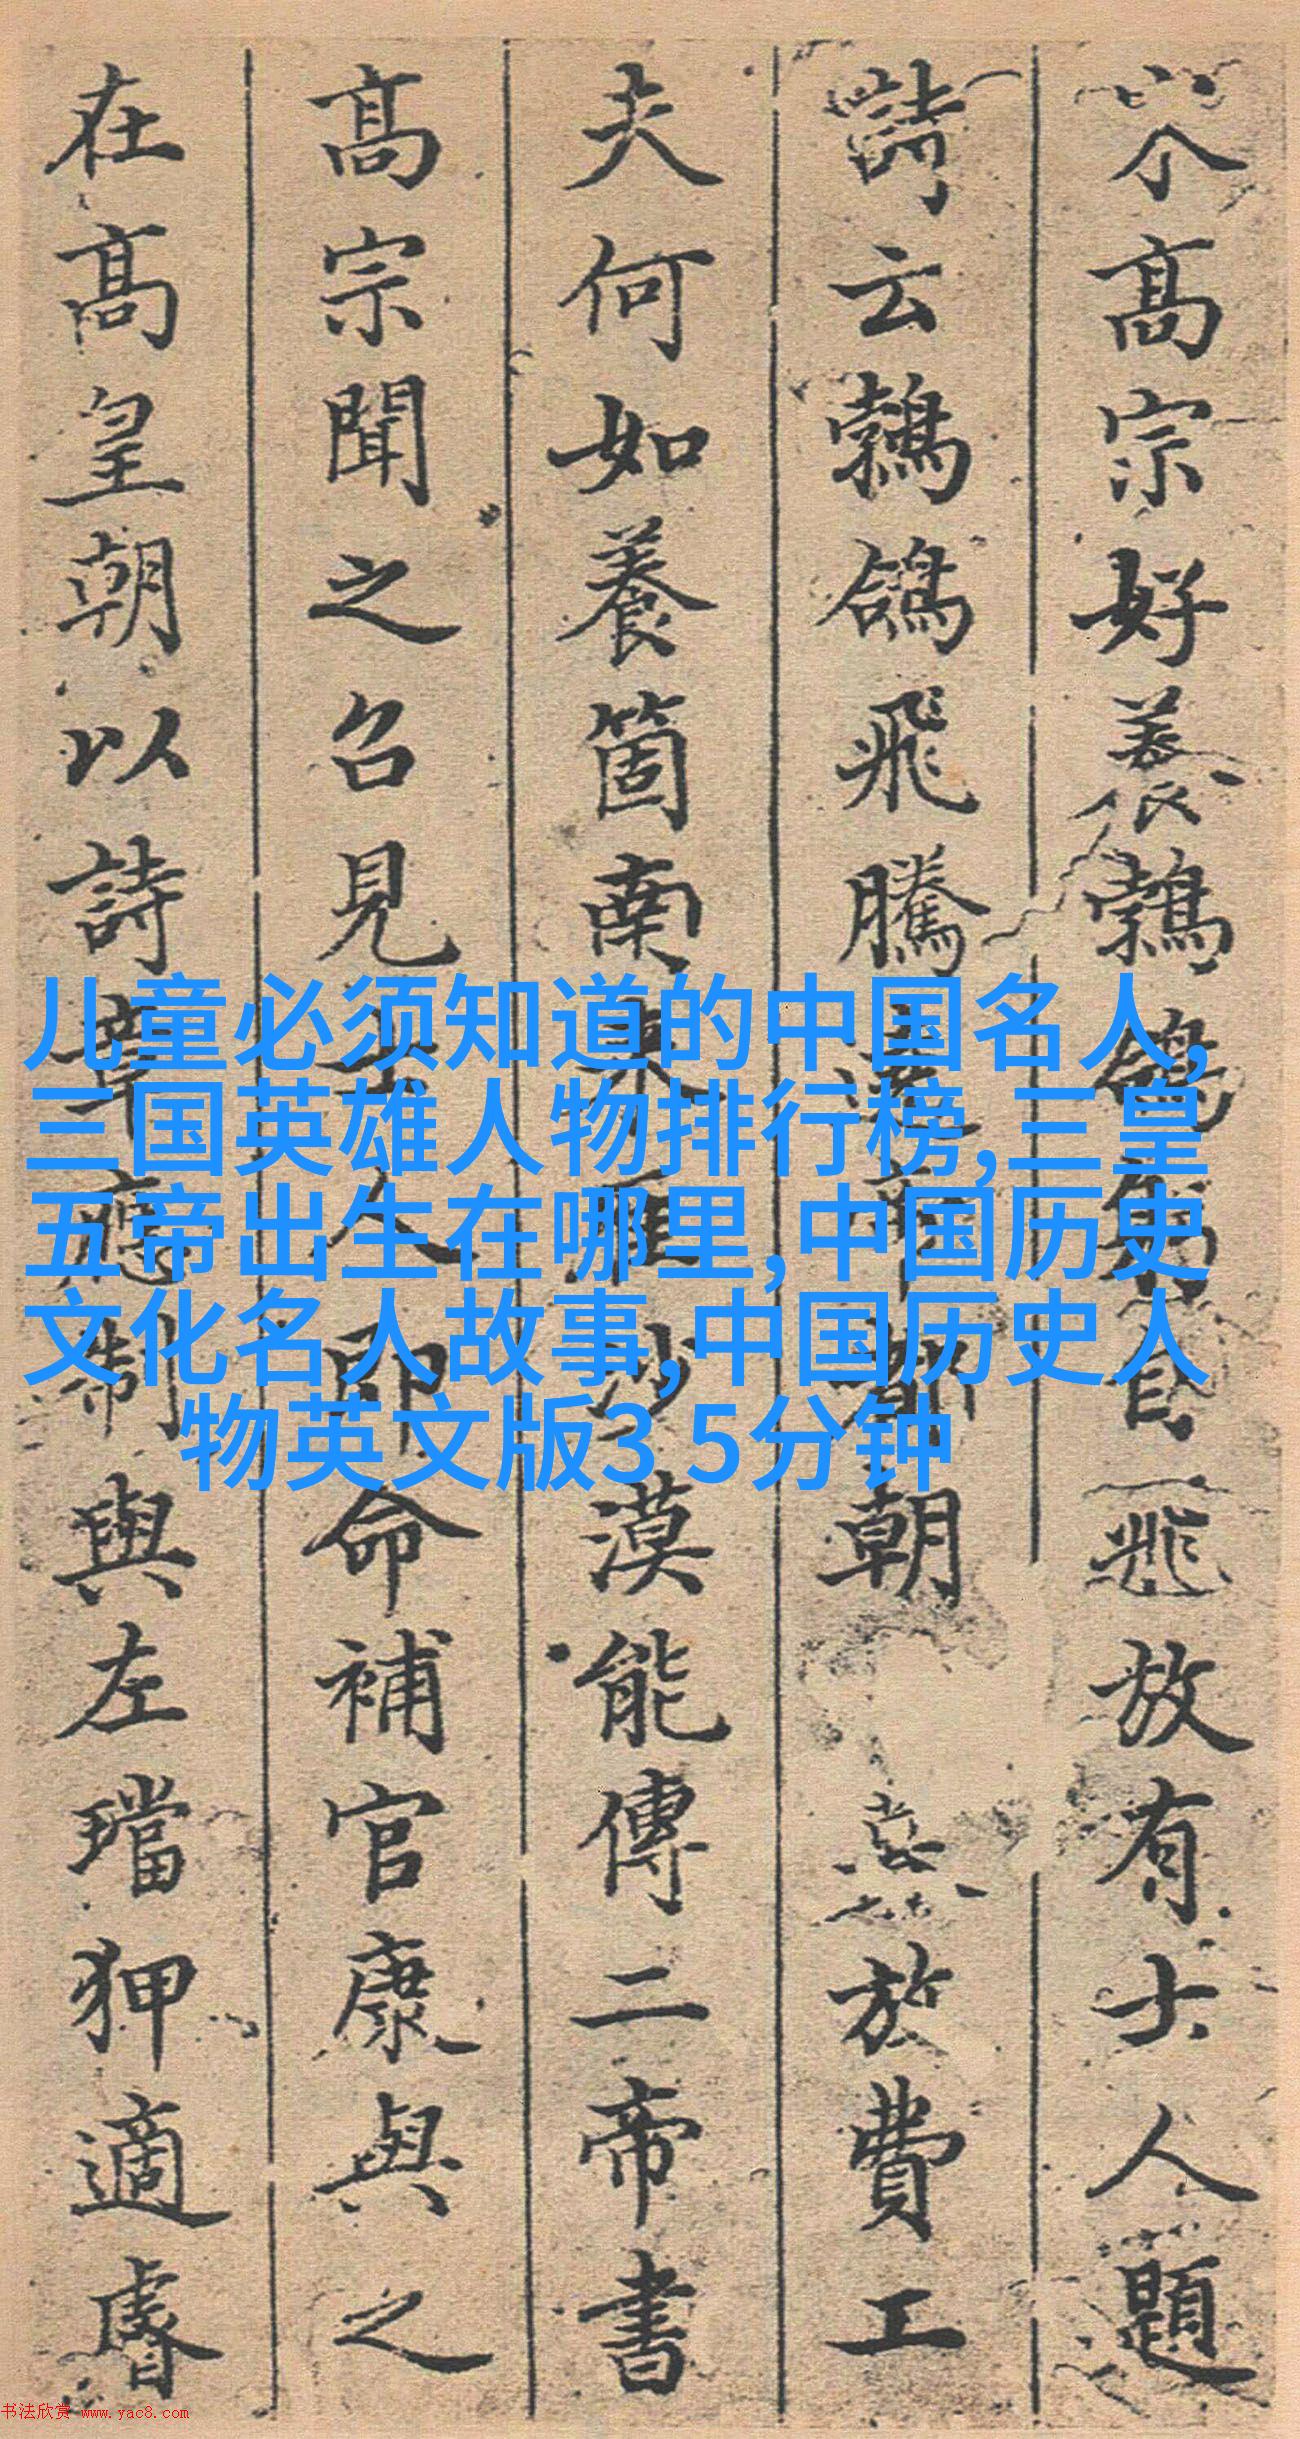 高宗好養鵓鴿躬自飛放有士人題
詩云鵓鴿飛騰遶帝都朝暮放費工
夫何如養箇南來雁沙漠能傳二帝書
高宗聞之召見士人即命補官康與之
在高皇朝以詩章應制與左璫狎適睿
儿童必须知道的中国名人,
三国英雄人物排行榜,三皇
五帝出生在哪里,中国历史
文化名人故事,中国历史人
物英文版3 5分钟
书法欣赏 www.yac8.com